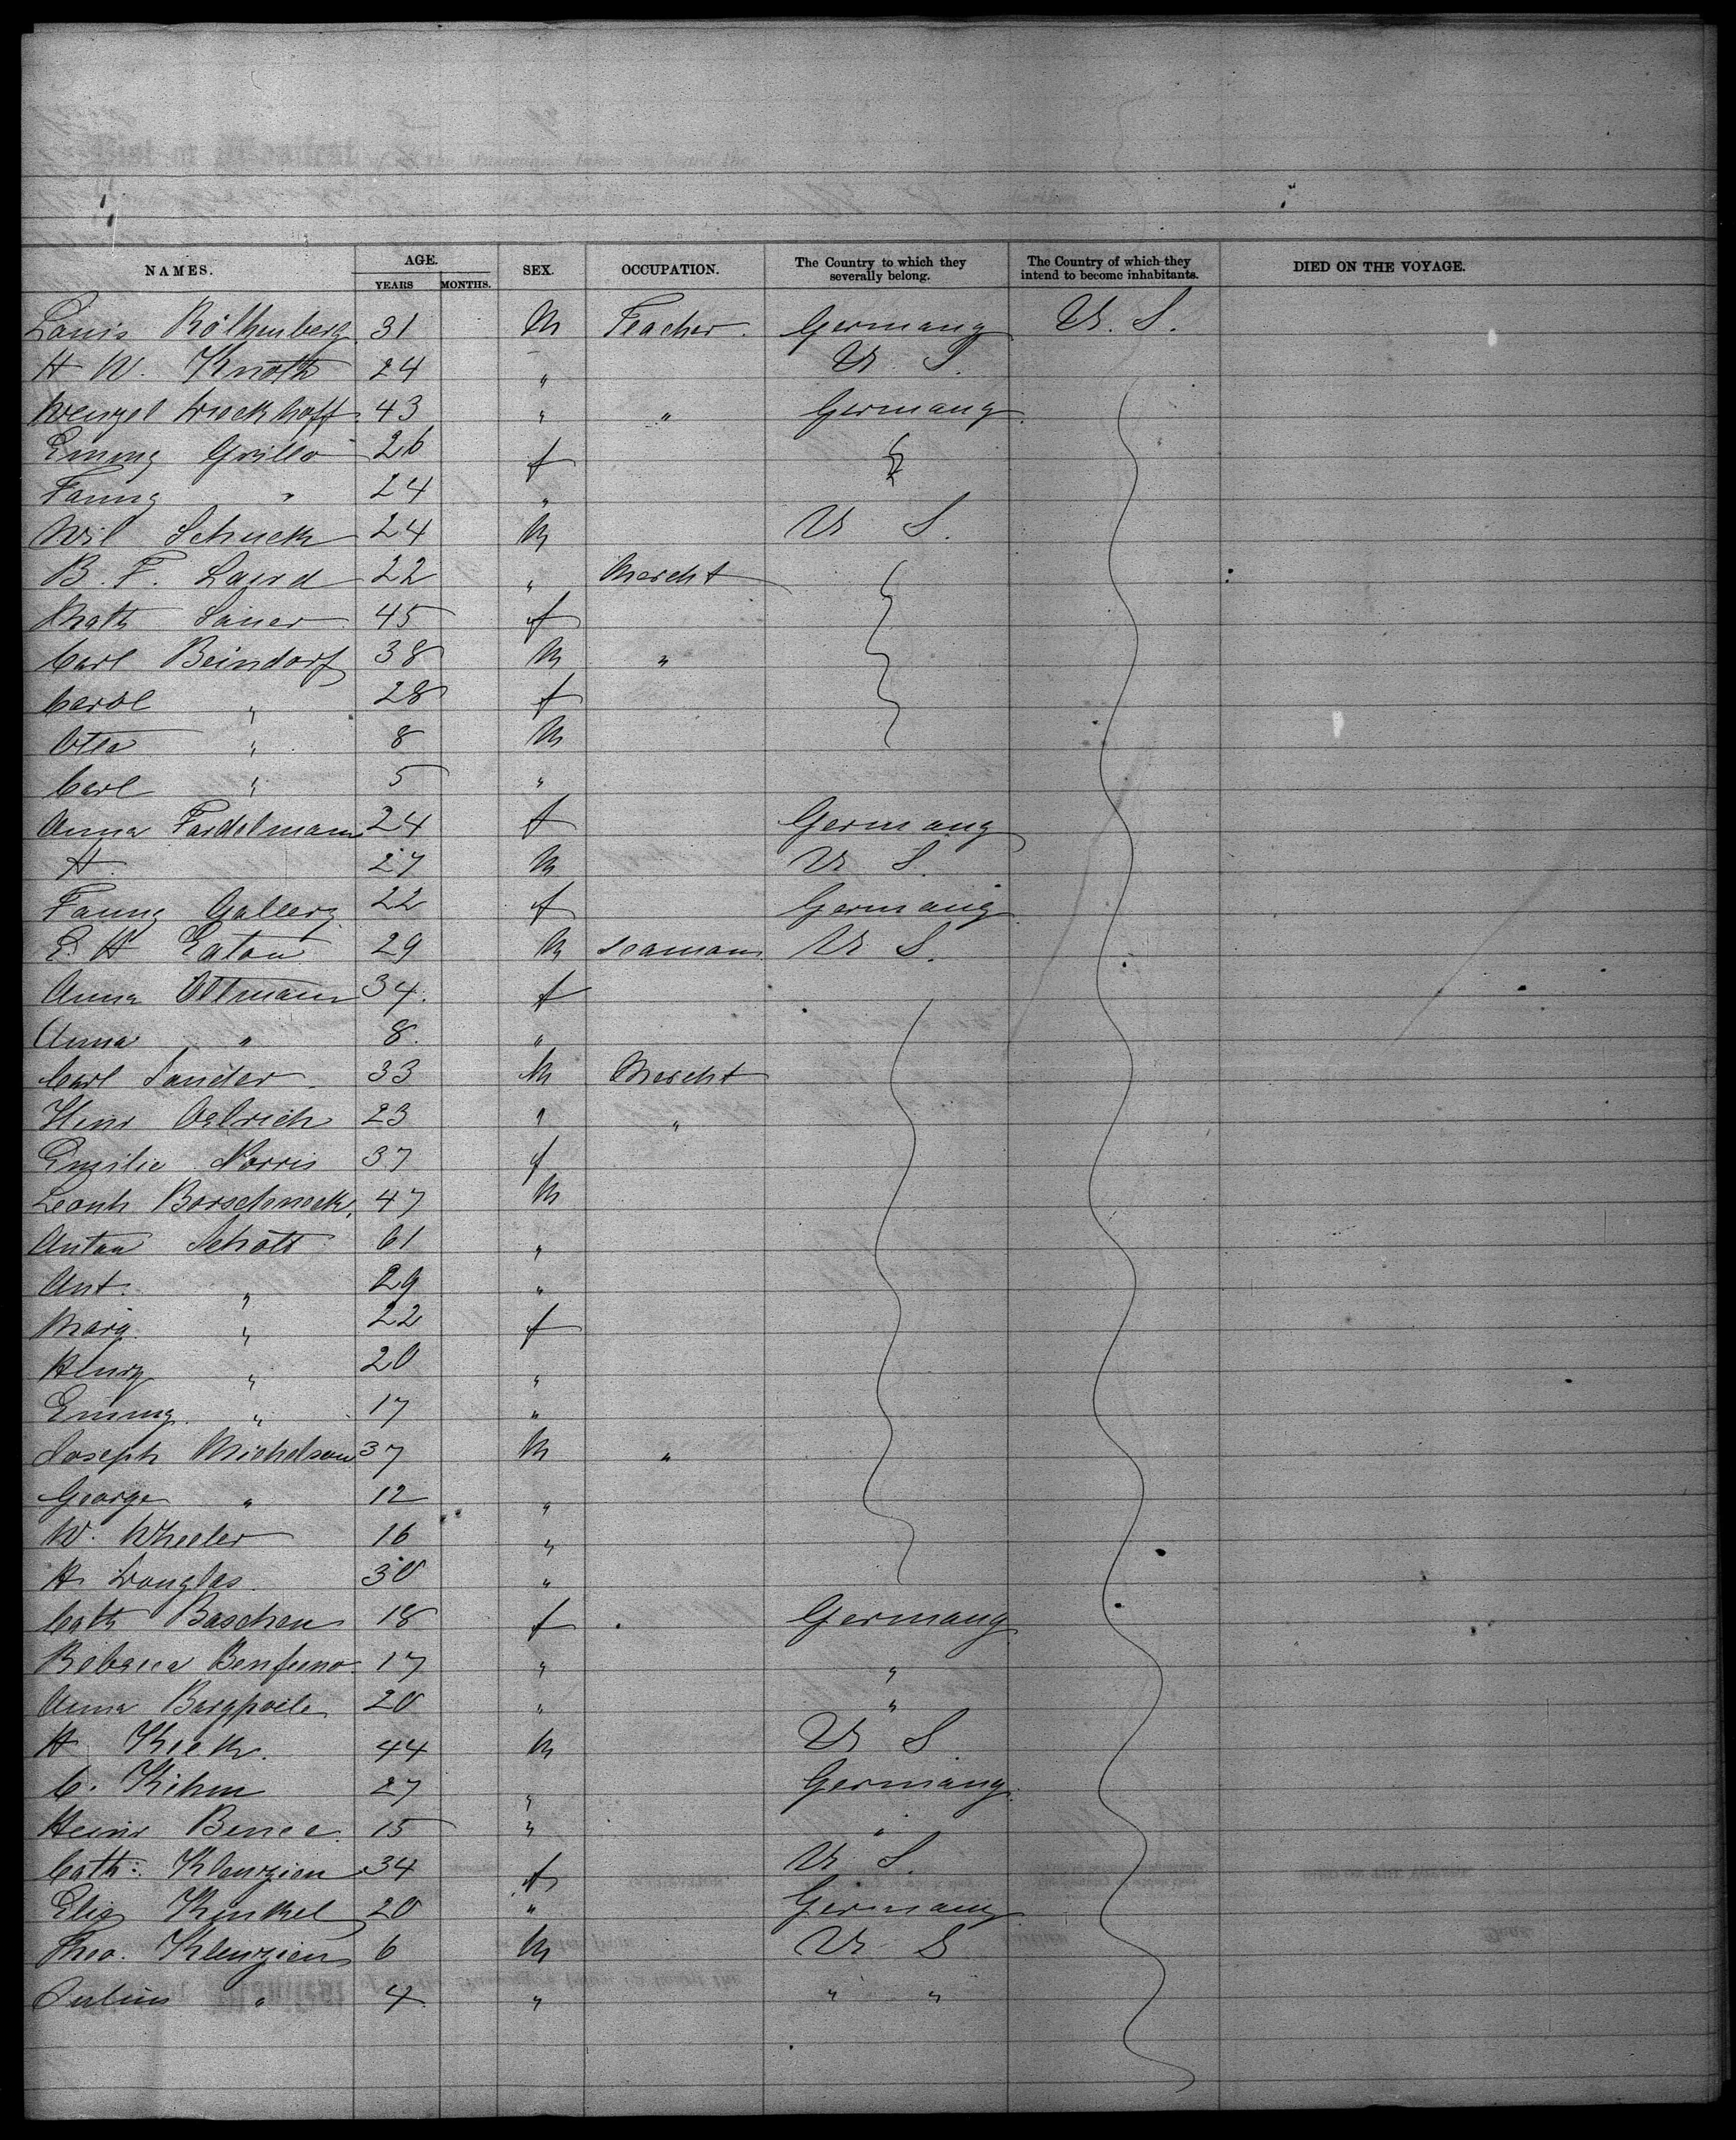 NAMES. AGE. YEARS MONTHS. SEX. OCCUPATION. The Country to which they severally belong. The Country of which they intend to become inhabitants. DIED ON THE VOYAGE.
Louis Rothenberg 31 M Teacher Germany U. S.
H W. Knoth 24 " U. S.
Wenzel Dieckhoff 43 " " Germany
Emmy Grillo 26 f
Fanny " 24 "
Wil Schuck 24 M U S.
B. F. Laird 22 " Mercht
Math Sauer 45 f
Carl Beindorf 38 M "
Carol " 28 f
Otto " 8 M
Carl " 5 "
Anna Fardelmann 24 f Germany
H 27 M U S.
Fanny Gallery 22 f Germany
E H Eaton 29 M seaman U S.
Anna Oltmann 34. f
Anna " 8. "
Carl Sander 33 M Mercht
Hinr Oelrich 23 " "
Emilie Norris 37 f
Leonh Borschneck. 47 M
Anton Schott 61 "
Ant. " 29 "
Marg. " 22 f
Henry " 20 "
Emmy " 17 "
Joseph Michelson 37 M "
George " 12 "
W. Wheeler 16 "
H. Douglas 30 "
Cath Baschen 18 f Germany
Rebecca 17 " "
Anna 20 " "
H Kieck. 44 M U S
C. Kihm 27 " Germany
Heinr Benee. 15 " "
Cath: Klenzien 34 f U S.
Elis Kunkel 20 " Germany
Theo. Klenzien 6 M U S
Julius " 4 " " "